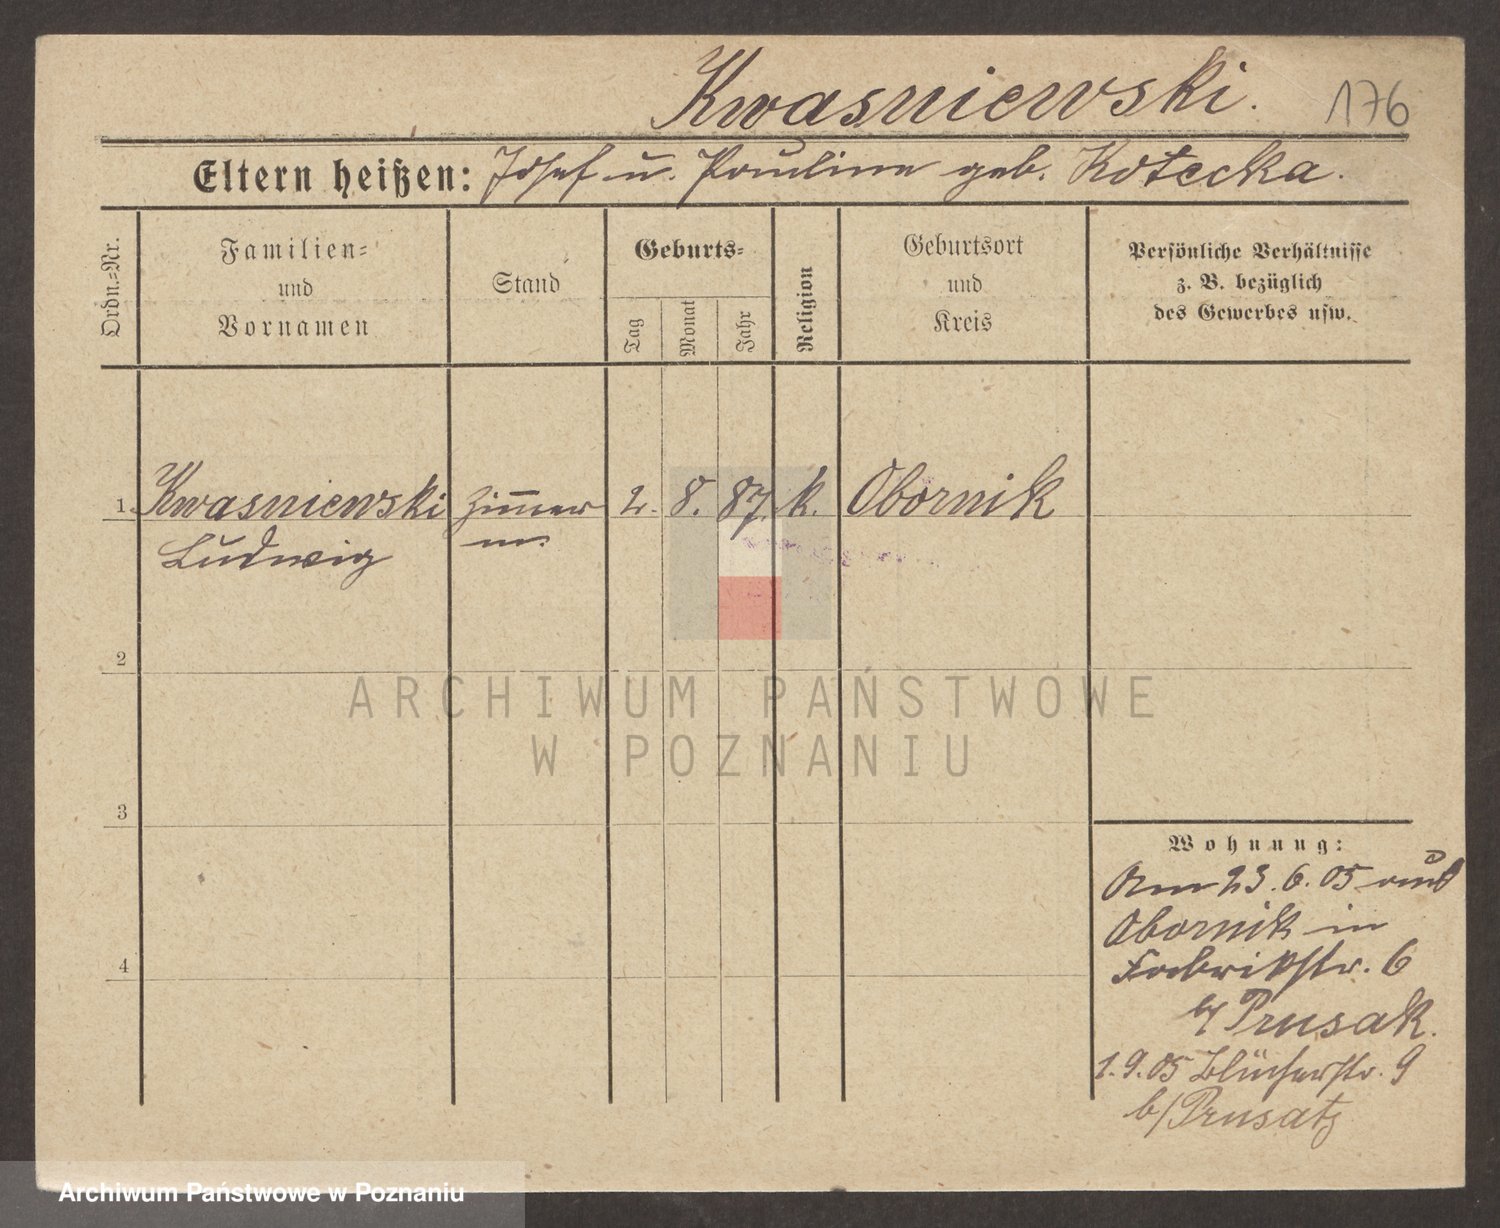 Kwasniewski.
176
Eltern heißen: Josef u. Pauline geb. Kotecka.
Ordn.-Nr.
Familien-
und
Vornamen
Stand
Geburts-
Tag
Monat
Jahr
Religion
Geburtsort
und
Kreis
Persönliche Verhältnisse
z. B. bezüglich
des Gewerbes usw.
1. Kwasniewski Zimmer 2. 8. 87. k. Obornik
Ludwig m.
2
ARCHIWUM PAŃSTWOWE
W POZNANIU
3
Wohnung:
Am 23.6.05 aus
Obornik in
Fabrikstr. 6
b/ Prusak.
4
1.9.05 Blücherstr. 9
b/ Prusatz
Archiwum Państwowe w Poznaniu